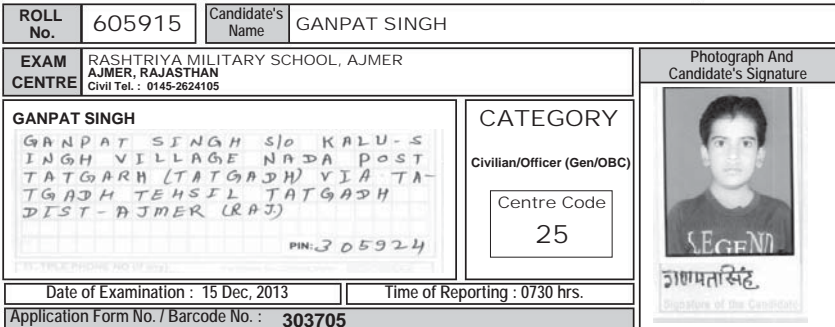 ROLL No. 605915 Candidate's Name GANPAT SINGH
EXAM CENTRE
RASHTRIYA MILITARY SCHOOL, AJMER
AJMER, RAJASTHAN
Civil Tel. : 0145-2624105
Photograph And
Candidate's Signature
GANPAT SINGH
GANPAT SINGH S/o KALU-S
INGH VILLAGE NADA POST
TATGARH (TATGADH) VIA TA-
TGADH TEHSIL TATGADH
DIST-AJMER (RAJ.)
PIN: 305924
CATEGORY
Civilian/Officer (Gen/OBC)
Centre Code
25
LEGEND
गणपतसिंह
Signature of the Candidate
Date of Examination : 15 Dec, 2013
Time of Reporting : 0730 hrs.
Application Form No. / Barcode No. : 303705